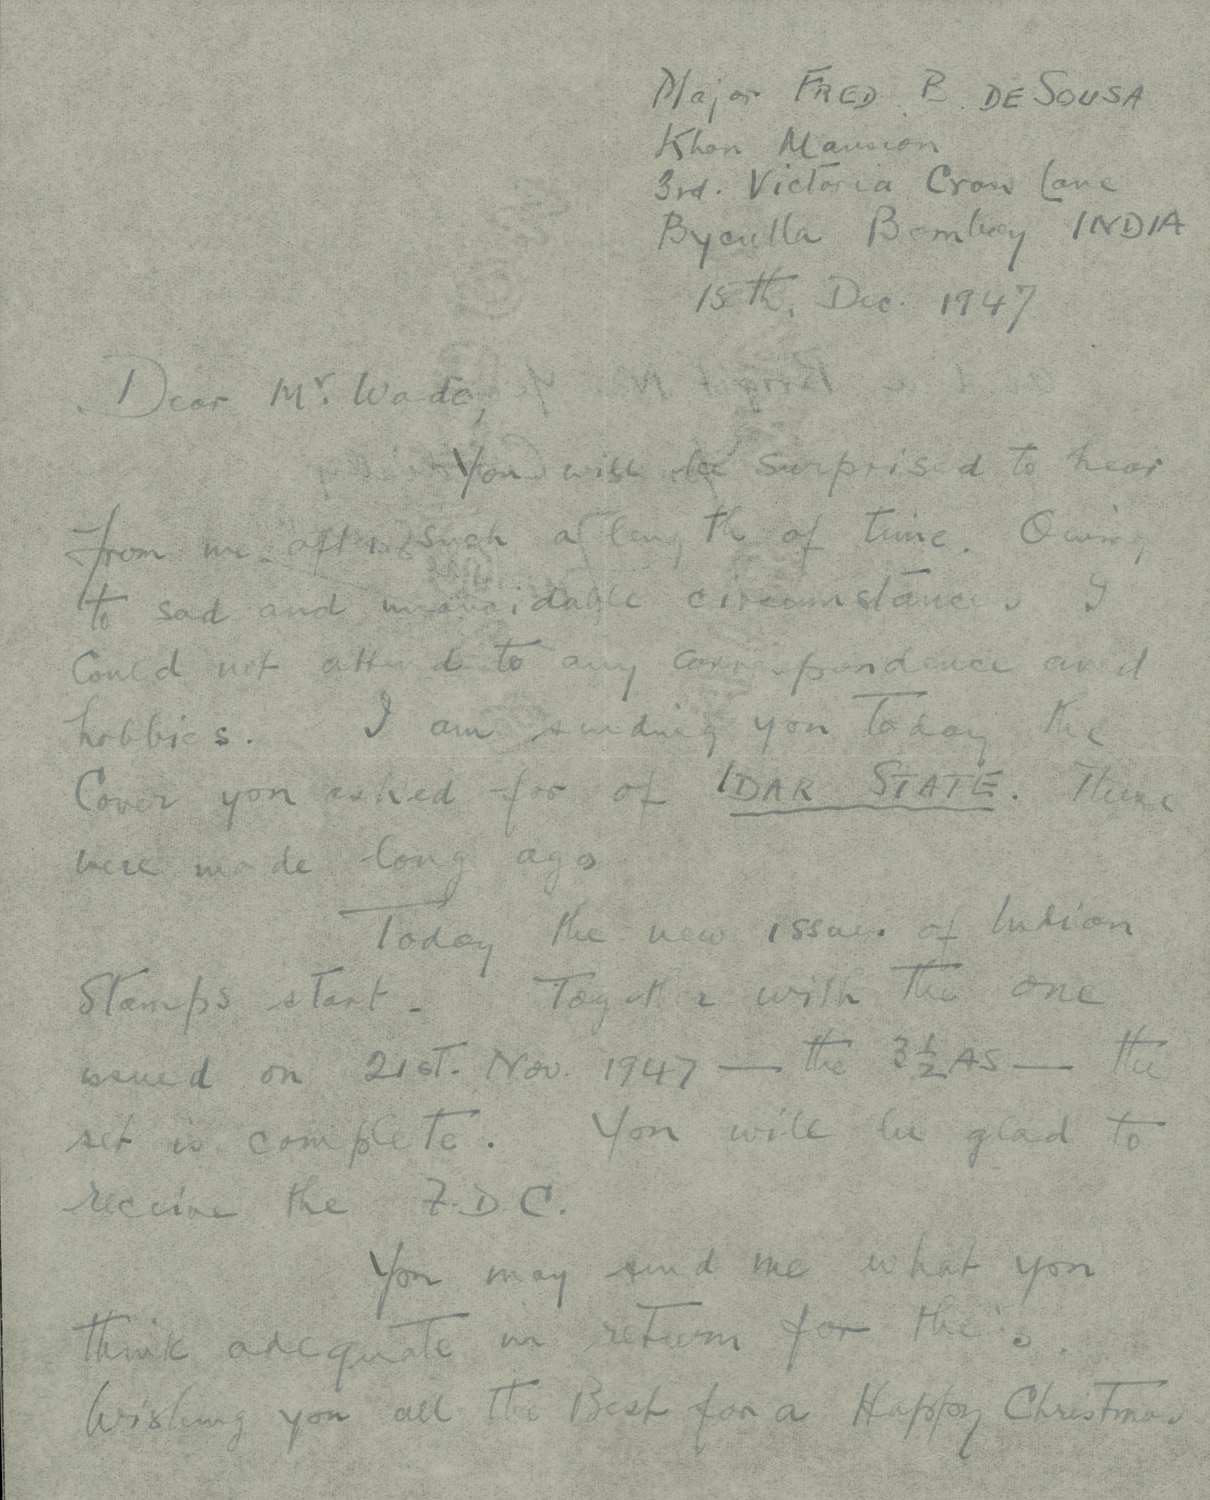 Major FRED B. DE SOUSA
Khan Mansion
3rd. Victoria Cross Lane
Byculla Bombay INDIA
15th. Dec. 1947
Dear Mr. Wade,
You will be surprised to hear
from me after such a length of time. Owing
to sad and unavoidable circumstances I
could not attend to any correspondence and
hobbies. I am sending you today the
Cover you asked for of IDAR STATE. These
were made long ago
Today the new issue of Indian
Stamps start. Together with the one
issued on 21st. Nov. 1947 — the 3½ AS — the
set is complete. You will be glad to
receive the F.D.C.
You may send me what you
think adequate in return for this.
Wishing you all the Best for a Happy Christmas